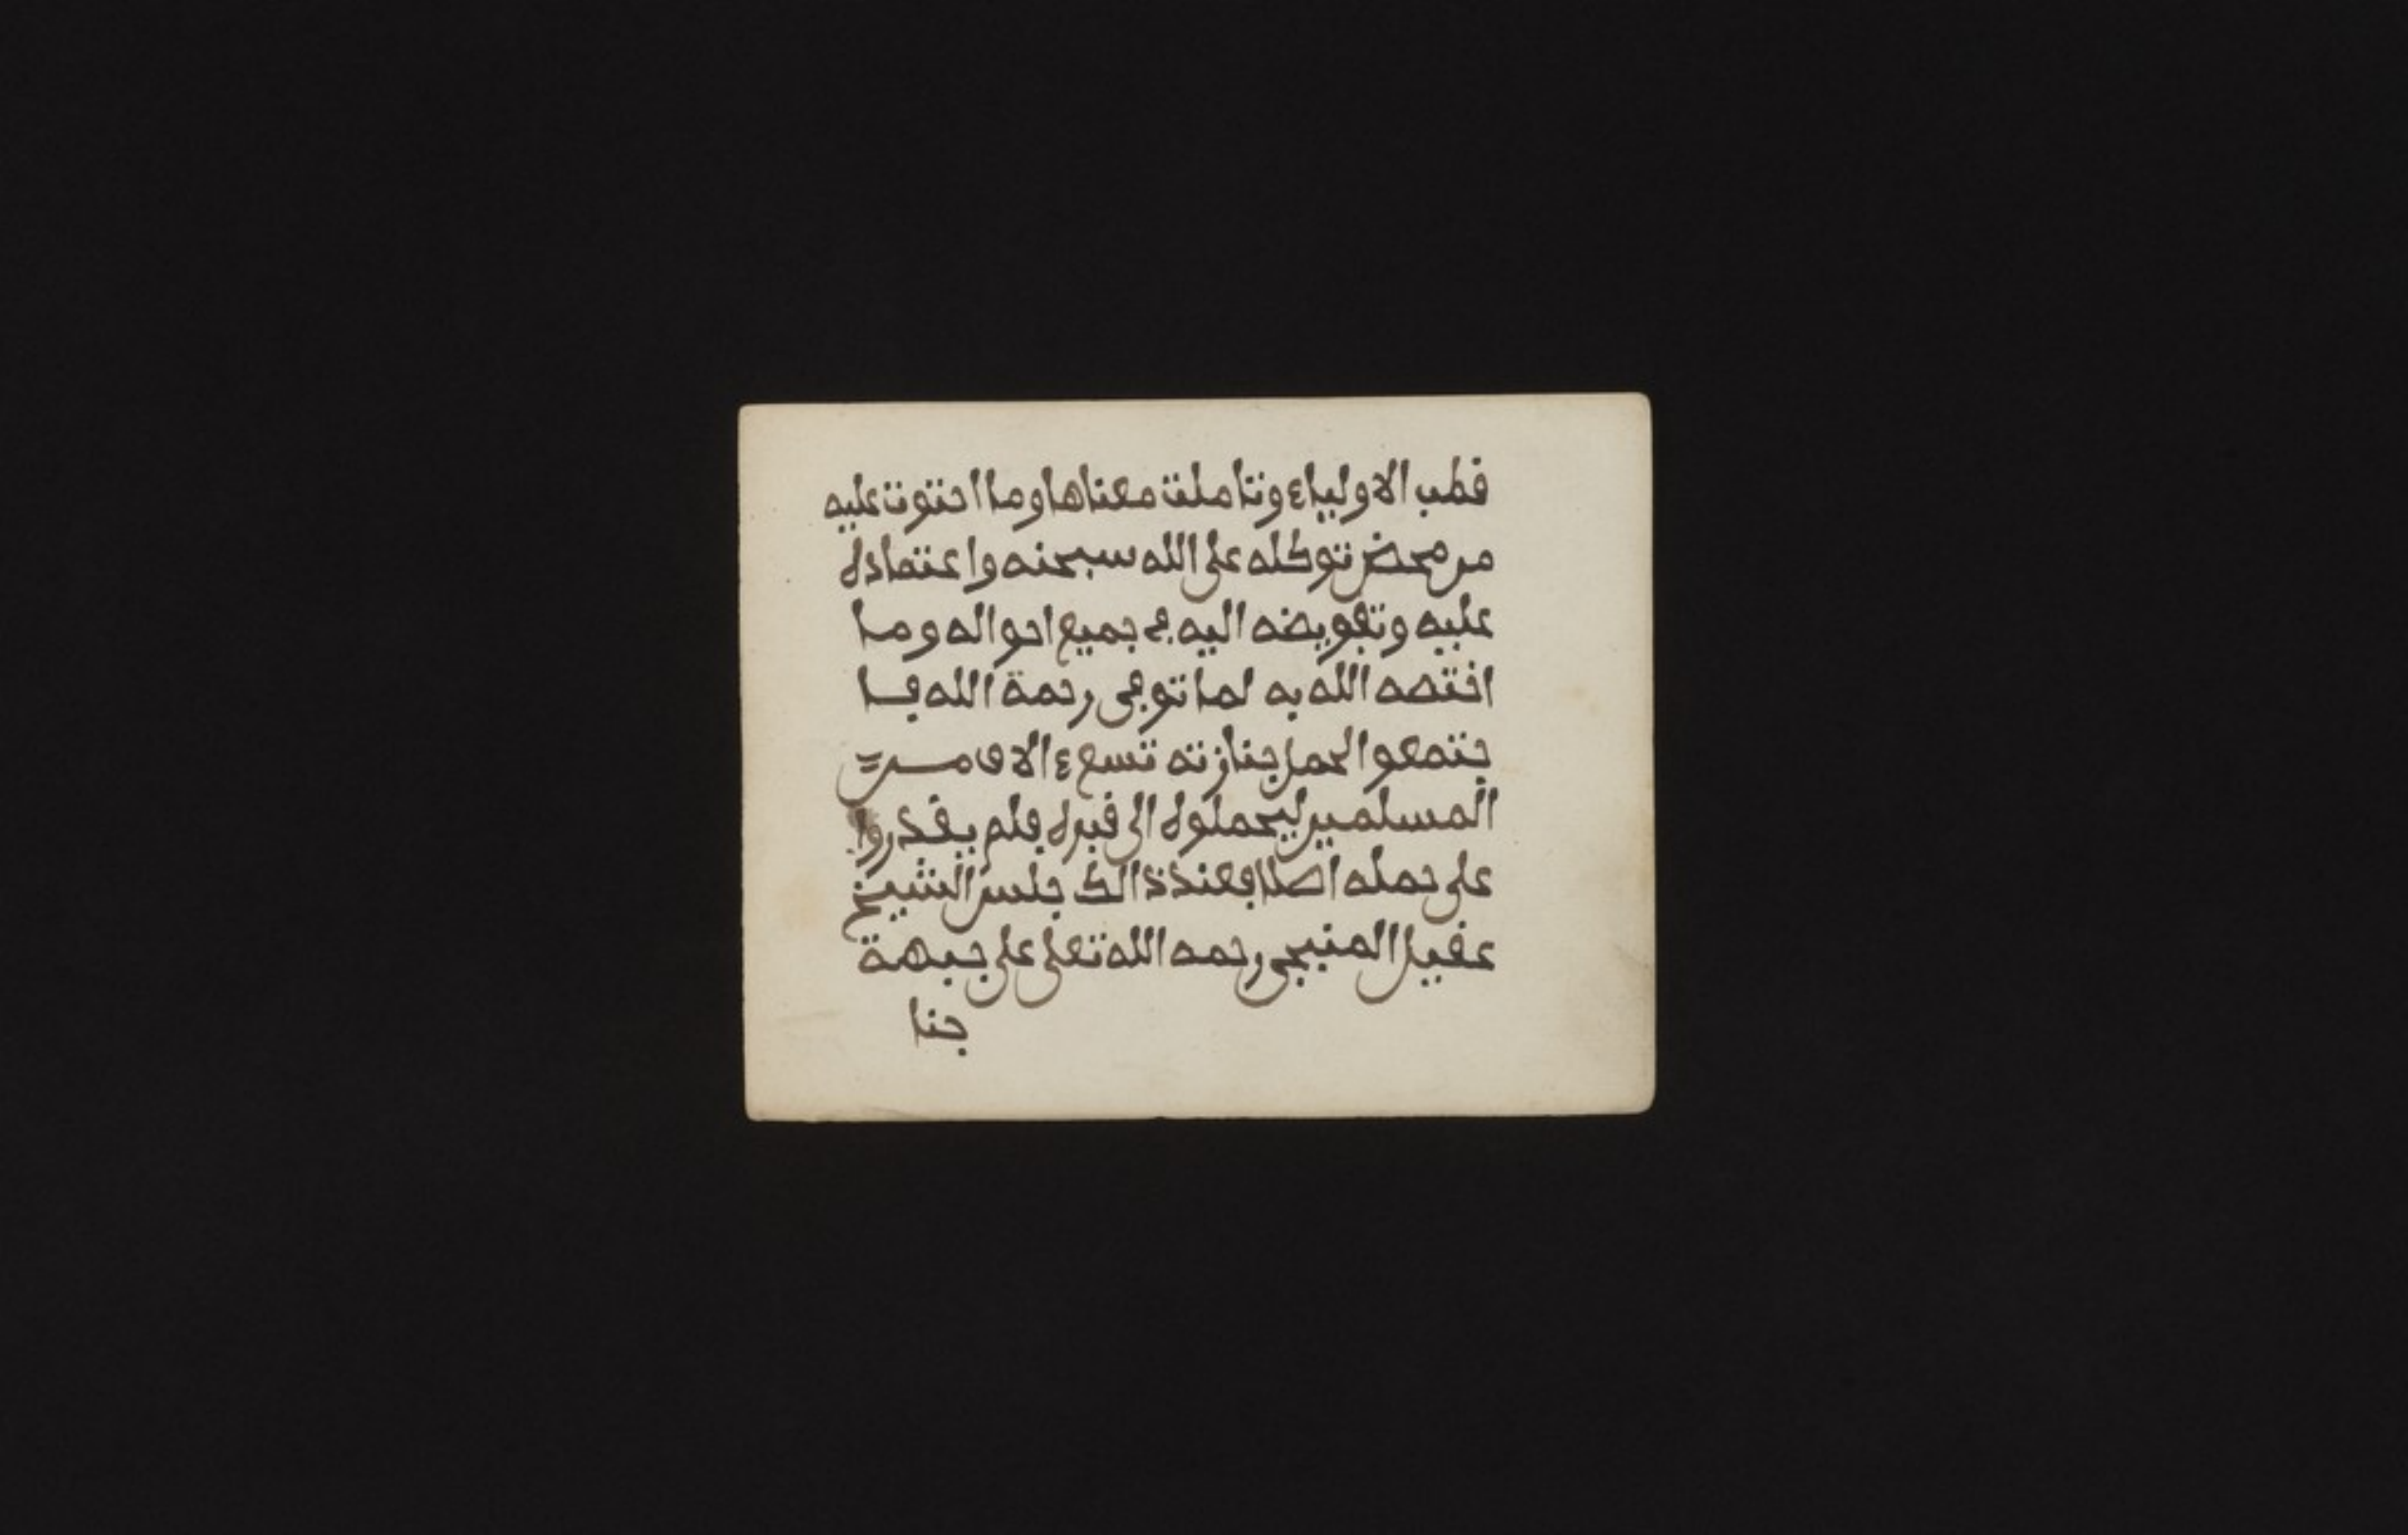 قطب الاولياء وتاملت معناها وما احتوت عليه
من محض توكله على الله سبحنه واعتماده
عليه وتفويضه اليه في جميع احواله وما
اختصه الله به لما توفى رحمة الله فا
جتمعوا لحمل جنازته تسعء الاف من
المسلمين ليحملوه الى قبره فلم يقدروا
على حمله اصلا فعند ذالك جلس الشيخ
عقيل المنبجى رحمه الله تعلى على جبهة
جنا